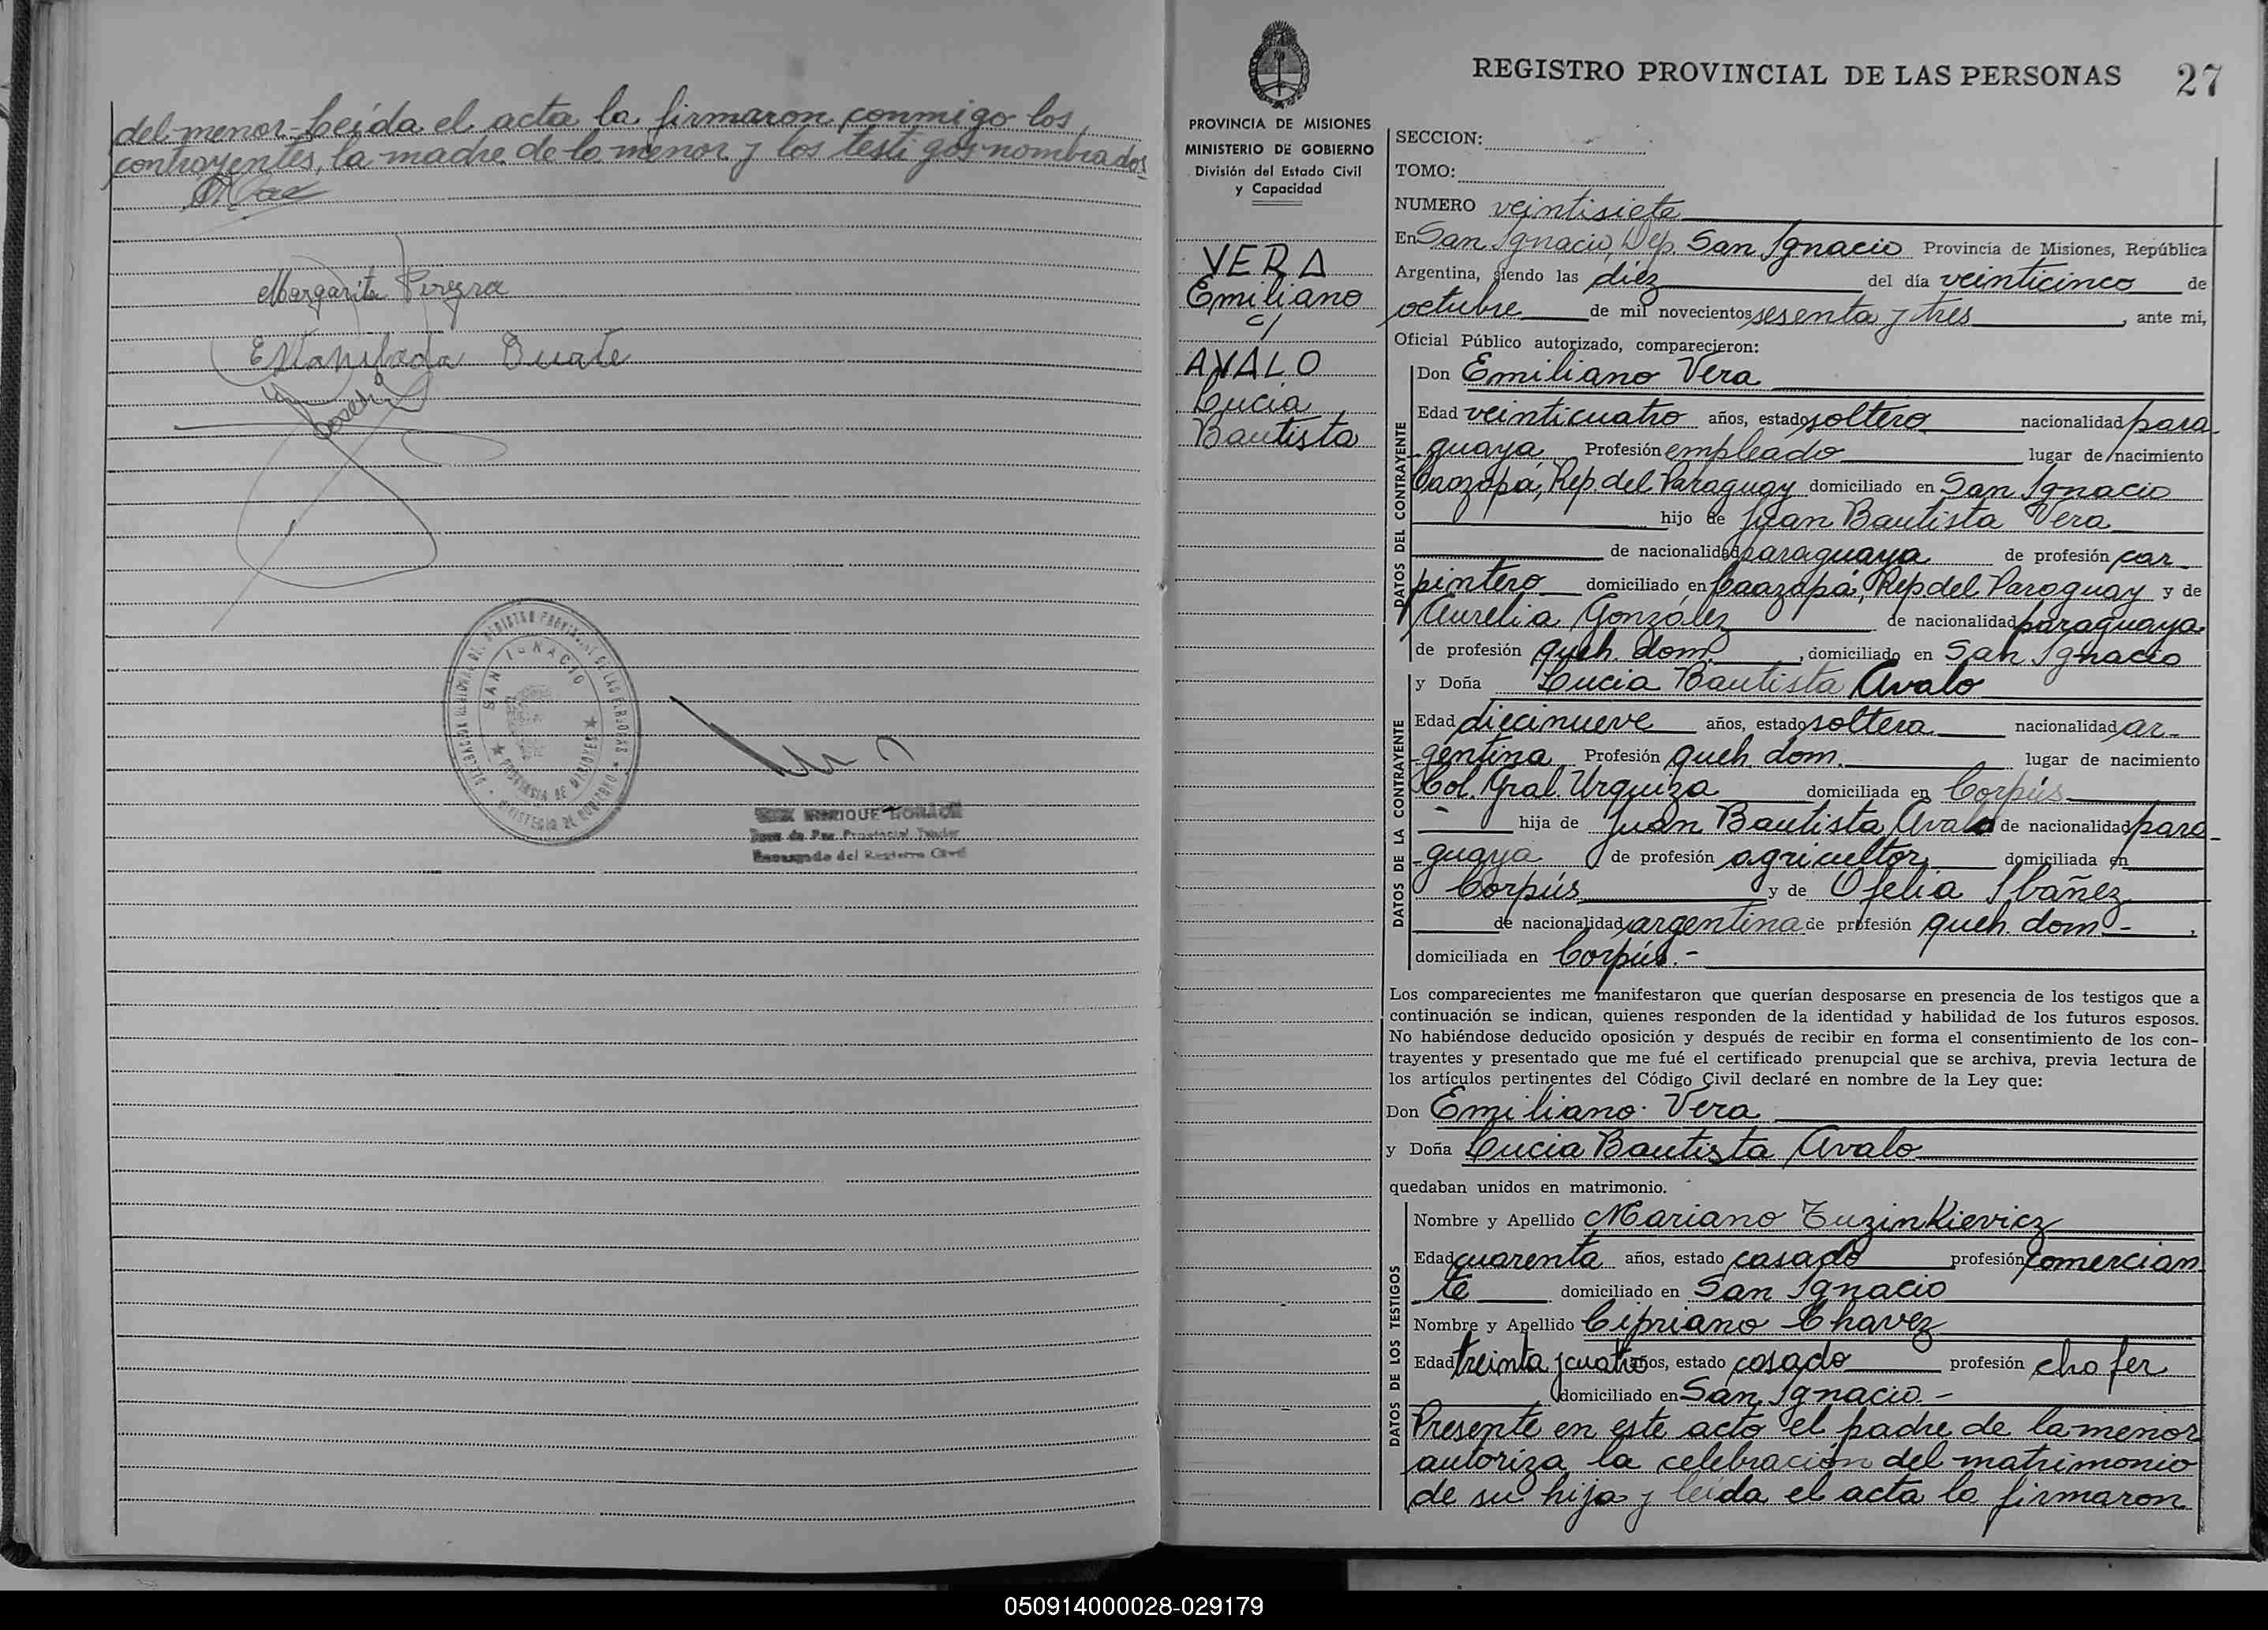 del menor - Leída el acta la firmaron conmigo los
contrayentes, la madre de la menor y los testigos nombrados
Margarita Pereyra
Duarte
SAN IGNACIO
PROVINCIA DE MISIONES
MINISTERIO DE GOBIERNO
ENRIQUE
Juez de Paz Provincial Titular
Encargado del Registro Civil
REGISTRO PROVINCIAL DE LAS PERSONAS 27
PROVINCIA DE MISIONES
MINISTERIO DE GOBIERNO
División del Estado Civil
y Capacidad
VERA
Emiliano
c/
AVALO
Lucia
Bautista
SECCION:
TOMO:
NUMERO veintisiete
En San Ignacio, Dep. San Ignacio Provincia de Misiones, República
Argentina, siendo las diez del día veinticinco de
octubre de mil novecientos sesenta y tres, ante mi,
Oficial Público autorizado, comparecieron:
DATOS DEL CONTRAYENTE
Don Emiliano Vera
Edad veinticuatro años, estado soltero nacionalidad para-
guaya Profesión empleado lugar de nacimiento
Caazapá, Rep. del Paraguay domiciliado en San Ignacio
hijo de Juan Bautista Vera
de nacionalidad paraguaya de profesión car-
pintero domiciliado en Caazapá, Rep del Paraguay y de
Aurelia González de nacionalidad paraguaya
de profesión queh. dom., domiciliado en San Ignacio
DATOS DE LA CONTRAYENTE
y Doña Lucia Bautista Avalo
Edad diecinueve años, estado soltera nacionalidad ar-
gentina Profesión queh. dom. lugar de nacimiento
Col. Gral Urquiza domiciliada en Corpús
hija de Juan Bautista Avalo de nacionalidad para-
guaya de profesión agricultor domiciliada en
Corpús y de Ofelia Ibañez
de nacionalidad argentina de profesión queh. dom-,
domiciliada en Corpús.-
Los comparecientes me manifestaron que querían desposarse en presencia de los testigos que a
continuación se indican, quienes responden de la identidad y habilidad de los futuros esposos.
No habiéndose deducido oposición y después de recibir en forma el consentimiento de los con-
trayentes y presentado que me fué el certificado prenupcial que se archiva, previa lectura de
los artículos pertinentes del Código Civil declaré en nombre de la Ley que:
Don Emiliano Vera
y Doña Lucia Bautista Avalo
quedaban unidos en matrimonio.
DATOS DE LOS TESTIGOS
Nombre y Apellido Mariano Tuzinkievicz
Edad cuarenta años, estado casado profesión comercian
te domiciliado en San Ignacio
Nombre y Apellido Cipriano Chavez
Edad treinta y cuatro años, estado casado profesión chofer
domiciliado en San Ignacio.-
Presente en este acto el padre de la menor
autoriza la celebración del matrimonio
de su hija y leída el acta la firmaron
050914000028-029179